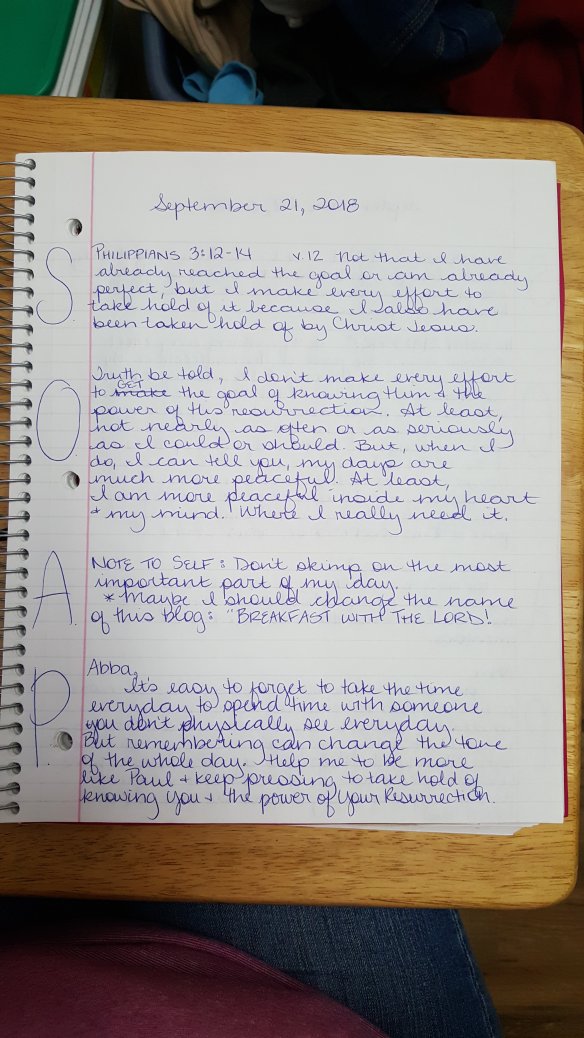 September 21, 2018
S
PHILIPPIANS 3:12-14 v.12 Not that I have
already reached the goal or am already
perfect, but I make every effort to
take hold of it because I also have
been taken hold of by Christ Jesus.
O
Truth be told, I don't make every effort
to make GET the goal of knowing Him + the
power of His resurrection. At least,
not nearly as often or as seriously
as I could or should. But, when I
do, I can tell you, my days are
much more peaceful. At least,
I am more peaceful inside my heart
+ my mind. Where I really need it.
A
NOTE TO SELF: Don't skimp on the most
important part of my day.
* Maybe I should change the name
of this blog: "BREAKFAST WITH THE LORD!
P
Abba,
It's easy to forget to take the time
everyday to spend time with someone
you don't physically see everyday.
But remembering can change the tone
of the whole day. Help me to be more
like Paul + keep pressing to take hold of
knowing You + the power of Your Resurrection.